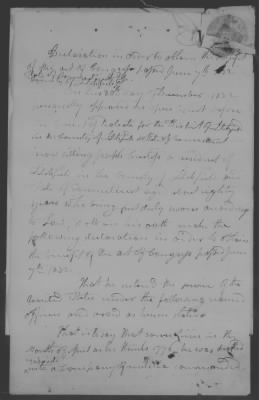 Declaration in order to obtain the benefit
of the act of Congress passed June 7th 1832.
State of Connecticut
County of Litchfield
On this 30th day November 1832
personally appeared in open court before
the Court of Probate for the District of
in the County of Litchfield & State of Connecticut
now sitting Joseph a resident of
Litchfield in the County of Litchfield and
State of Connecticut aged about eighty
years who being first duly sworn according
to Law, doth on his oath make the
following declaration in order to obtain
the benefit of the act of Congress passed June
7th 1832.
That he entered the service of the
United States under the following named
officers and served as herein stated
That is to say that sometime in the
Month of April as he thinks 1776, he was drafted
into a Company of militia commanded